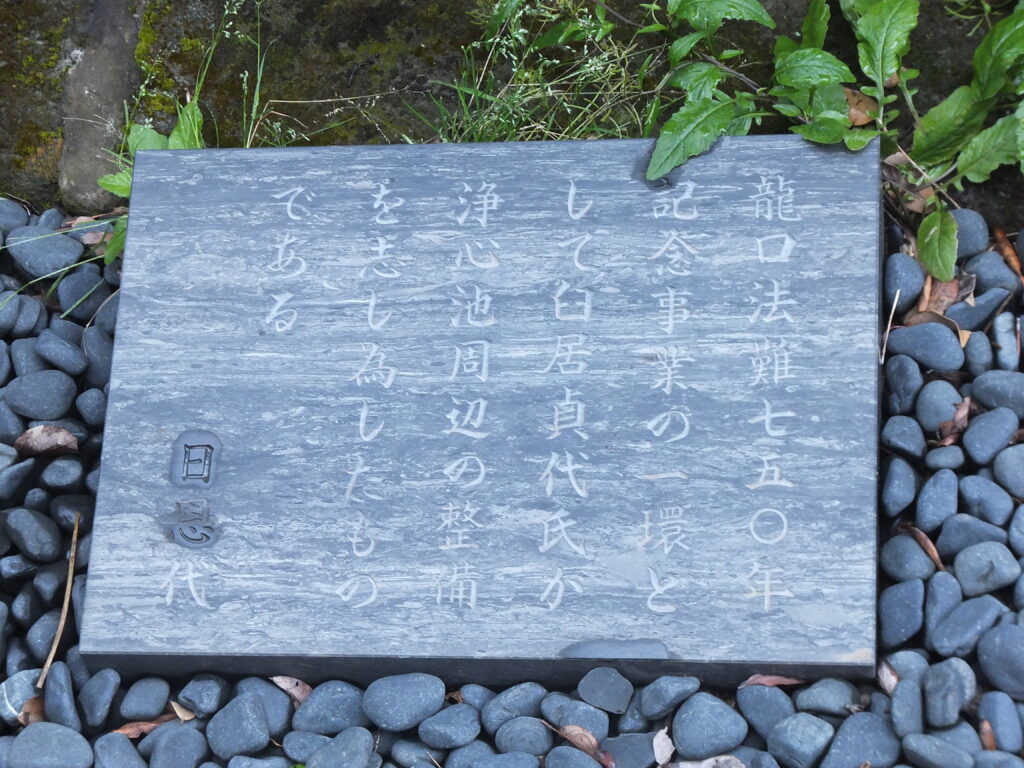 龍口法難七五〇年
記念事業の一環と
して臼居貞代氏が
浄心池周辺の整備
を志し為したもの
である
日 代